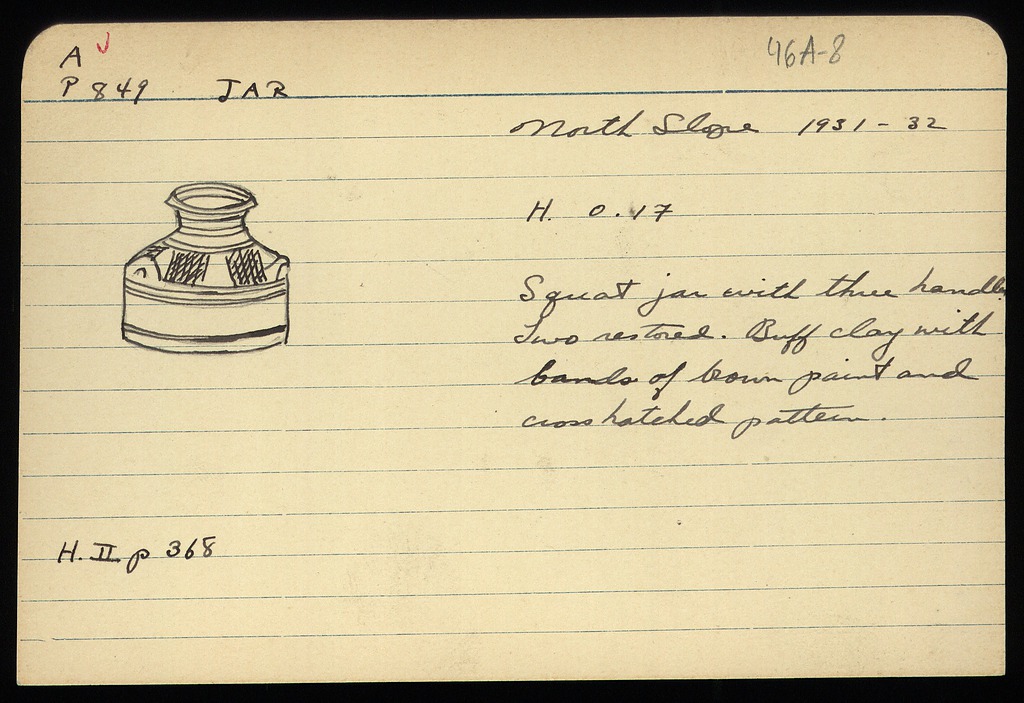 A
46A-8
P 849 JAR
North Slope 1931-32
H. 0.17
Squat jar with three handles.
Two restored. Buff clay with
bands of brown paint and
cross hatched pattern.
H. II p 368